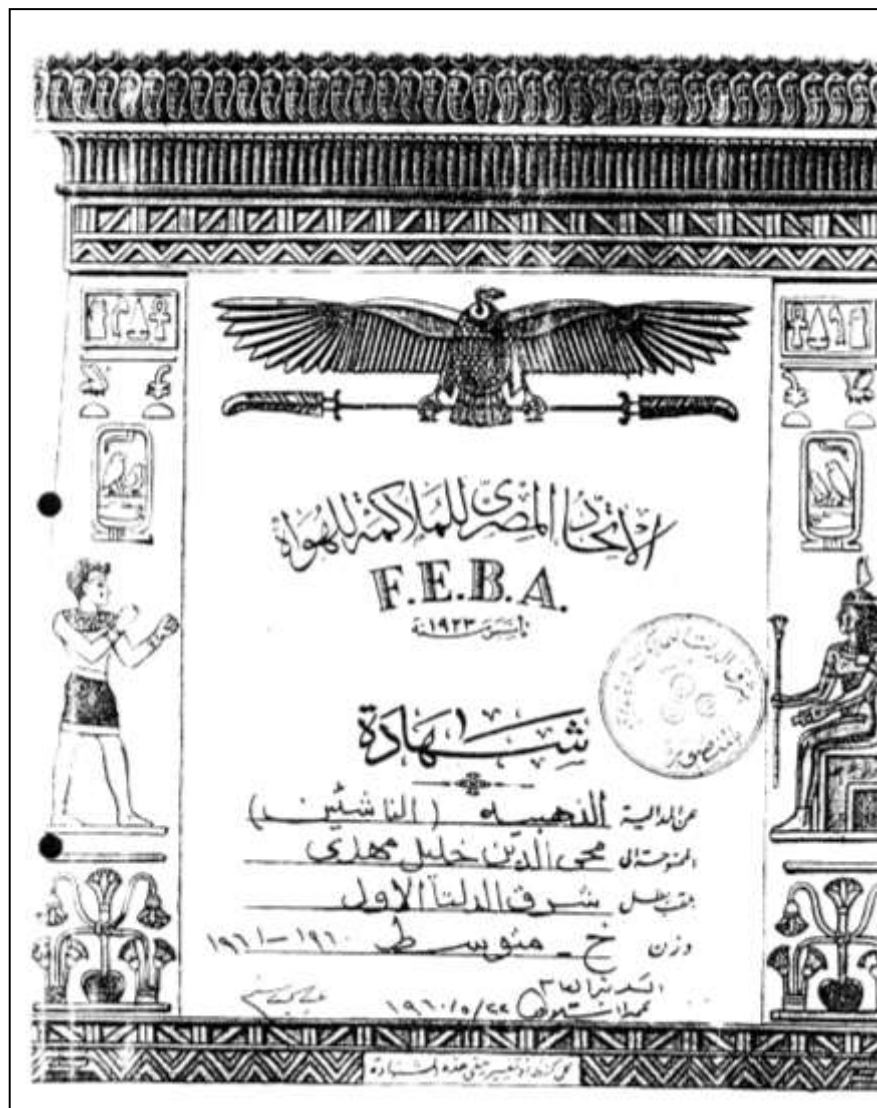 الاتحاد المصرى للملاكمة للهواة
F.E.B.A.
تأسس سنة ١٩٢٣
شهادة
عن المدالية الذهبيه (الناشئين)
الممنوحة الى محى الدين خليل مهدى
بلقب بطل شرق الدلتا الاول
وزن خ - متوسط ١٩٦٠-١٩٦١
١٩٦٠/٥/٢٢
كل كشط أو تغيير يلغى هذه الشهادة